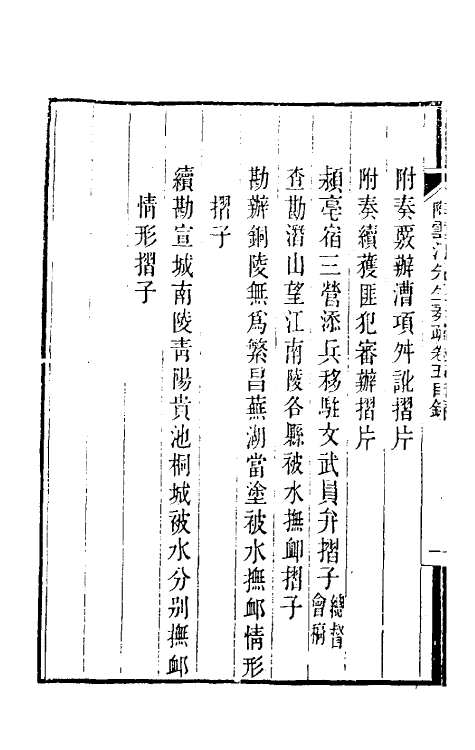 附奏覈辦漕項舛訛摺片
附奏續獲匪犯審辦摺片
潁亳宿三營添兵移駐文武員弁摺子總督會稿
查勘潛山望江南陵各縣被水撫卹摺子
勘辦銅陵無爲繁昌蕪湖當塗被水撫卹情形
摺子
續勘宣城南陵靑陽貴池桐城被水分别撫卹
情形摺子